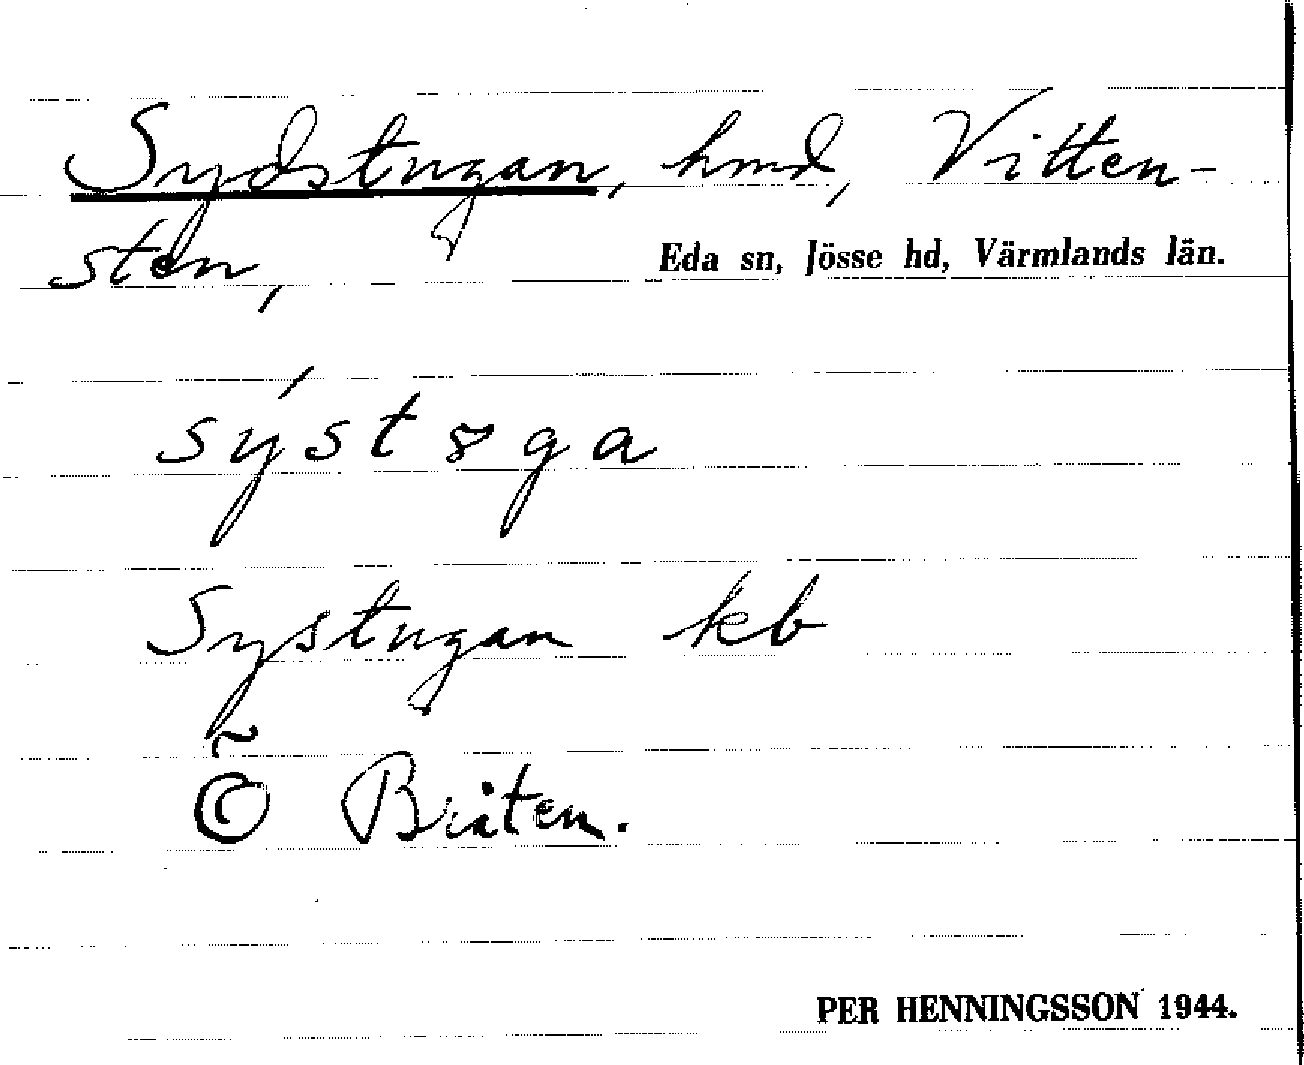 Sydstugan, hmd, Vitten-
sten, Eda sn, Jösse hd, Värmlands län.
sýstøga
Systugan kb
~
© Bråten.
PER HENNINGSSON 1944.